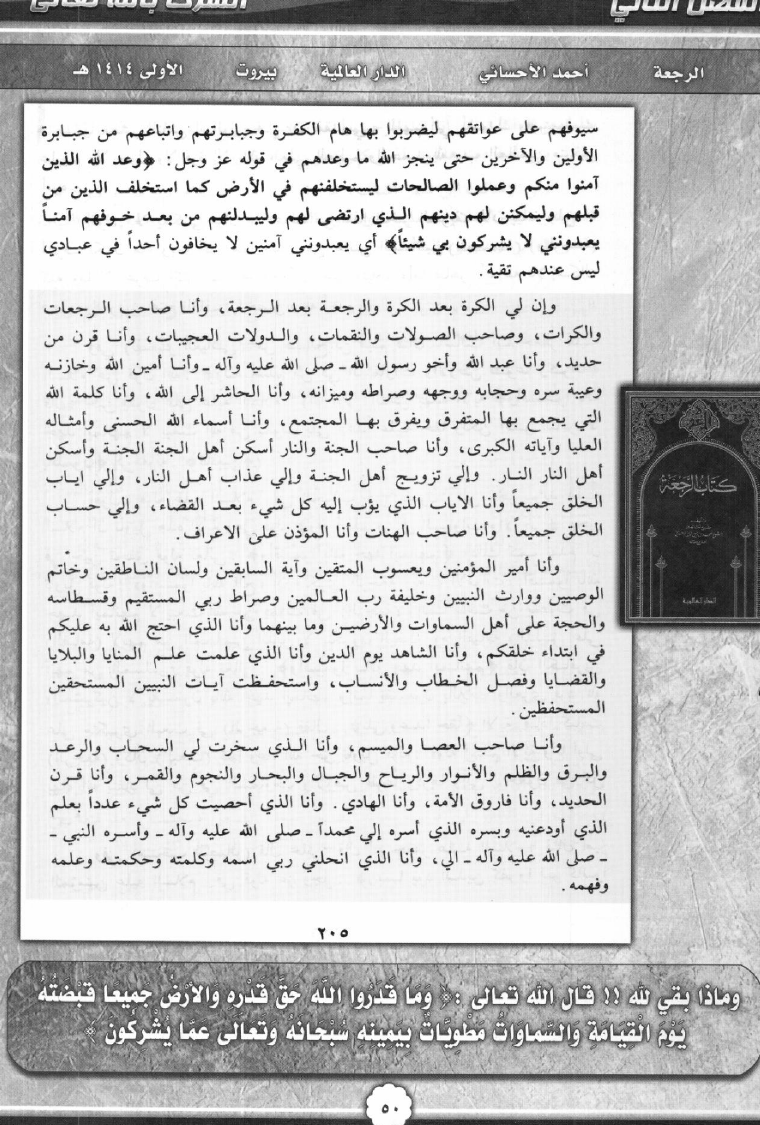 الفصل الثاني الشرك بالله تعالى
الرجعة أحمد الأحسائي الدار العالمية بيروت الأولى ١٤١٤ هـ
سيوفهم على عواتقهم ليضربوا بها هام الكفرة وجبابرتهم واتباعهم من جبابرة
الأولين والآخرين حتى ينجز الله ما وعدهم في قوله عز وجل: ﴿وعد الله الذين
آمنوا منكم وعملوا الصالحات ليستخلفنهم في الأرض كما استخلف الذين من
قبلهم وليمكنن لهم دينهم الذي ارتضى لهم وليبدلنهم من بعد خوفهم آمناً
يعبدونني لا يشركون بي شيئاً﴾ أي يعبدونني آمنين لا يخافون أحداً في عبادي
ليس عندهم تقية.
وإن لي الكرة بعد الكرة والرجعة بعد الرجعة، وأنا صاحب الرجعات
والكرات، وصاحب الصولات والنقمات، والدولات العجيبات، وأنا قرن من
حديد، وأنا عبد الله وأخو رسول الله ـ صلى الله عليه وآله ـ وأنا أمين الله وخازنه
وعيبة سره وحجابه ووجهه وصراطه وميزانه، وأنا الحاشر إلى الله، وأنا كلمة الله
التي يجمع بها المتفرق ويفرق بها المجتمع، وأنا أسماء الله الحسنى وأمثاله
العليا وآياته الكبرى، وأنا صاحب الجنة والنار أسكن أهل الجنة الجنة وأسكن
أهل النار النار. وإلي تزويج أهل الجنة وإلي عذاب أهل النار، وإلي اياب
الخلق جميعاً وأنا الاياب الذي يؤب إليه كل شيء بعد القضاء، وإلي حساب
الخلق جميعاً. وأنا صاحب الهنات وأنا المؤذن على الاعراف.
وأنا أمير المؤمنين ويعسوب المتقين وآية السابقين ولسان الناطقين وخاتم
الوصيين ووارث النبيين وخليفة رب العالمين وصراط ربي المستقيم وقسطاسه
والحجة على أهل السماوات والأرضين وما بينهما وأنا الذي احتج الله به عليكم
في ابتداء خلقكم، وأنا الشاهد يوم الدين وأنا الذي علمت علم المنايا والبلايا
والقضايا وفصل الخطاب والأنساب، واستحفظت آيات النبيين المستحقين
المستحفظين.
وأنا صاحب العصا والميسم، وأنا الذي سخرت لي السحاب والرعد
والبرق والظلم والأنوار والرياح والجبال والبحار والنجوم والقمر، وأنا قرن
الحديد، وأنا فاروق الأمة، وأنا الهادي. وأنا الذي أحصيت كل شيء عدداً بعلم
الذي أودعنيه وبسره الذي أسره إلي محمداً ـ صلى الله عليه وآله ـ وأسره النبي ـ
ـ صلى الله عليه وآله ـ الي، وأنا الذي انحلني ربي اسمه وكلمته وحكمته وعلمه
وفهمه.
٢٠٥
كتاب الرجعة
الدار العالمية
وماذا بقي لله !! قال الله تعالى :﴿ وَمَا قَدَرُوا اللَّهَ حَقَّ قَدْرِهِ وَالأَرْضُ جَمِيعا قَبْضَتُهُ
يَوْمَ الْقِيَامَةِ وَالسَّماوَاتُ مَطْوِيَّاتٌ بِيَمِينِهِ سُبْحَانَهُ وَتَعَالَى عَمَّا يُشْرِكُونَ ﴾
٥٠